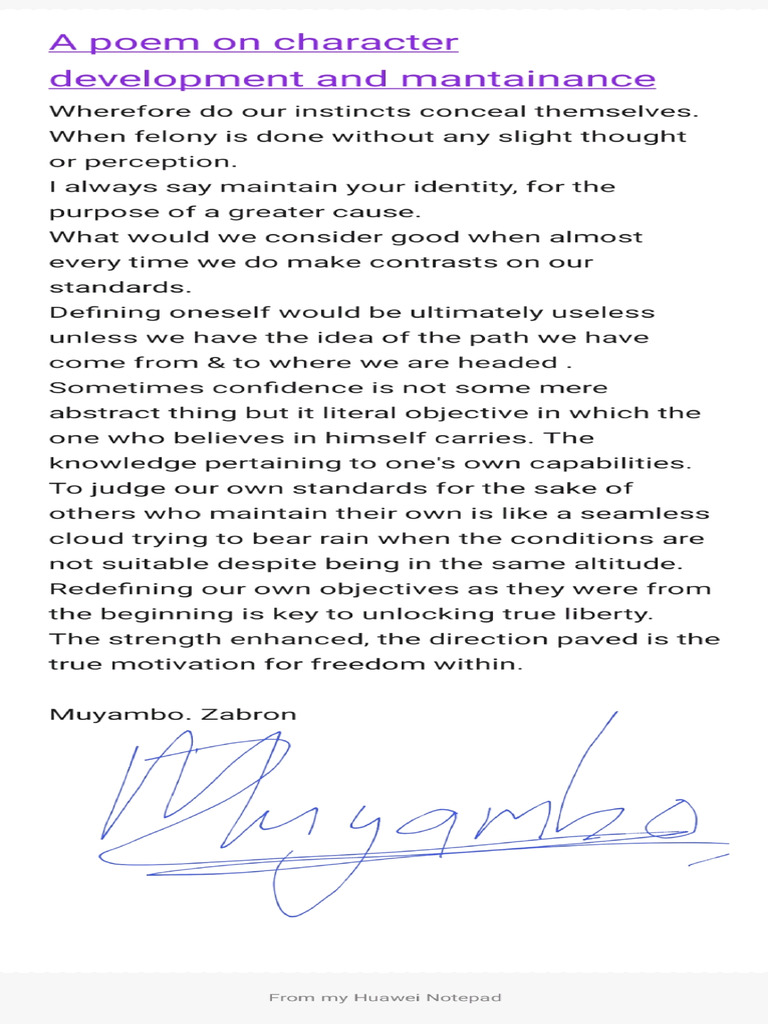 A poem on character
development and mantainance
Wherefore do our instincts conceal themselves.
When felony is done without any slight thought
or perception.
I always say maintain your identity, for the
purpose of a greater cause.
What would we consider good when almost
every time we do make contrasts on our
standards.
Defining oneself would be ultimately useless
unless we have the idea of the path we have
come from & to where we are headed .
Sometimes confidence is not some mere
abstract thing but it literal objective in which the
one who believes in himself carries. The
knowledge pertaining to one's own capabilities.
To judge our own standards for the sake of
others who maintain their own is like a seamless
cloud trying to bear rain when the conditions are
not suitable despite being in the same altitude.
Redefining our own objectives as they were from
the beginning is key to unlocking true liberty.
The strength enhanced, the direction paved is the
true motivation for freedom within.
Muyambo. Zabron
Muyambo
From my Huawei Notepad